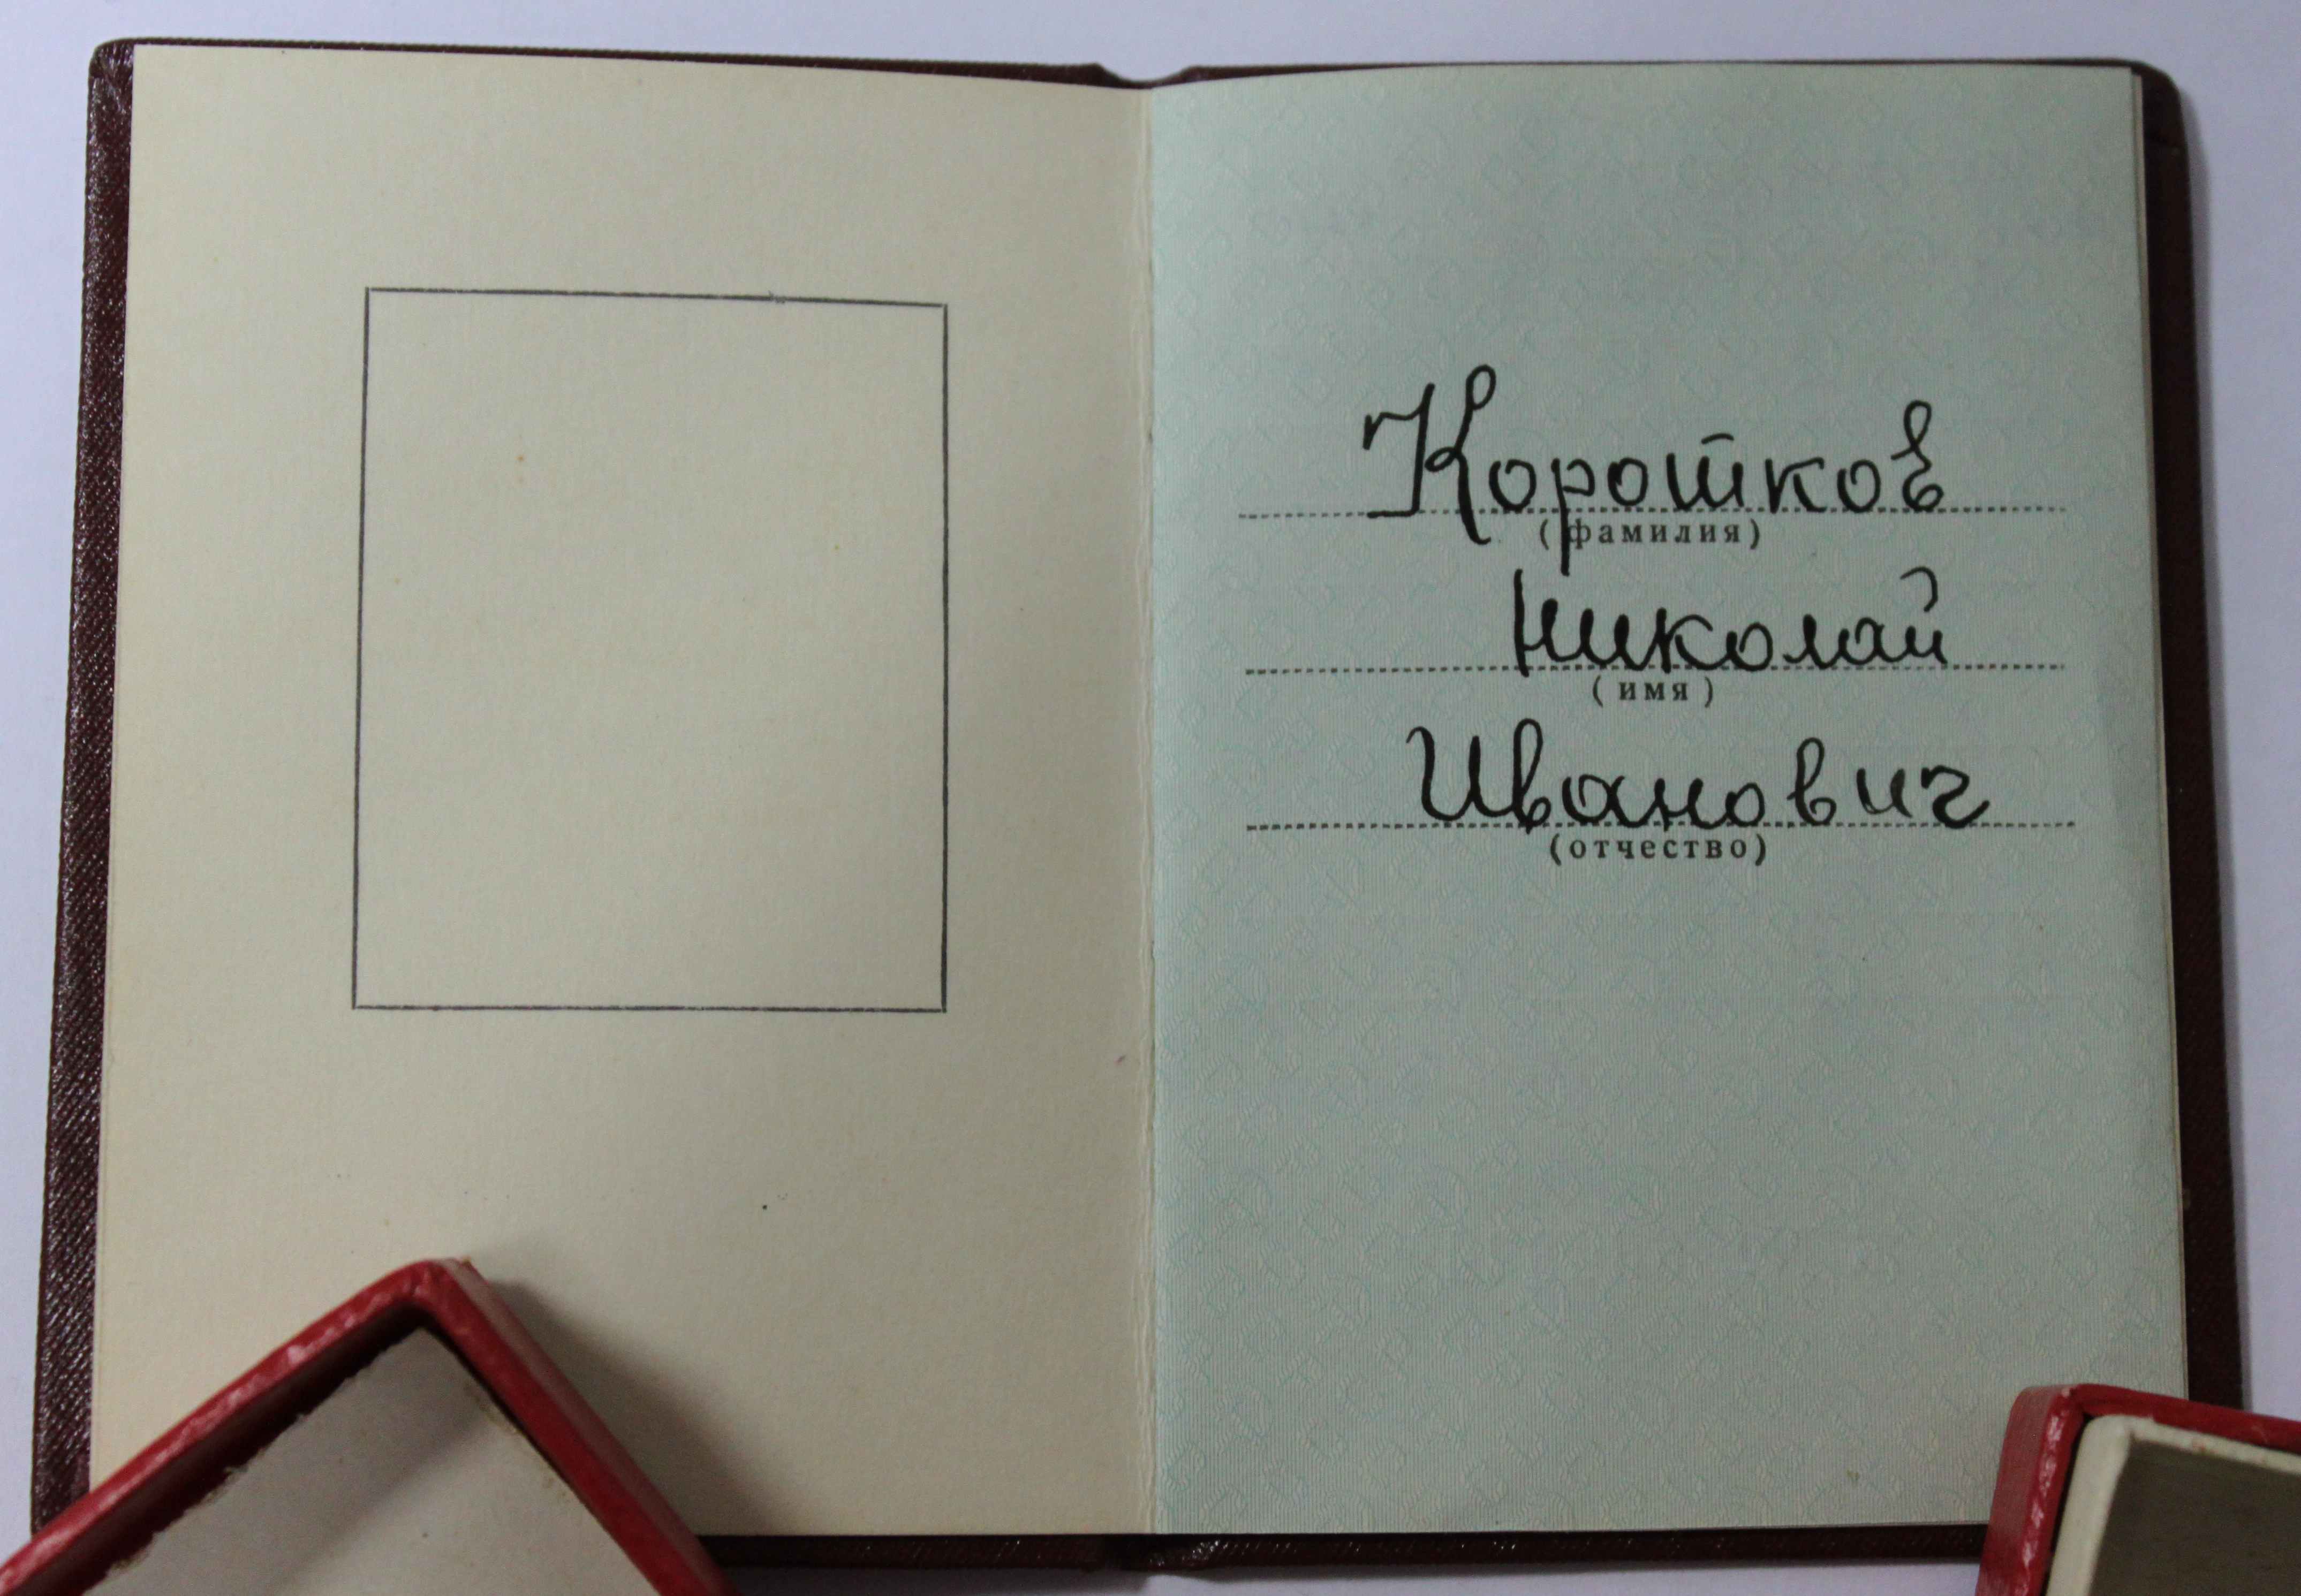 Коротков
(фамилия)
Николай
(имя)
Иванович
(отчество)